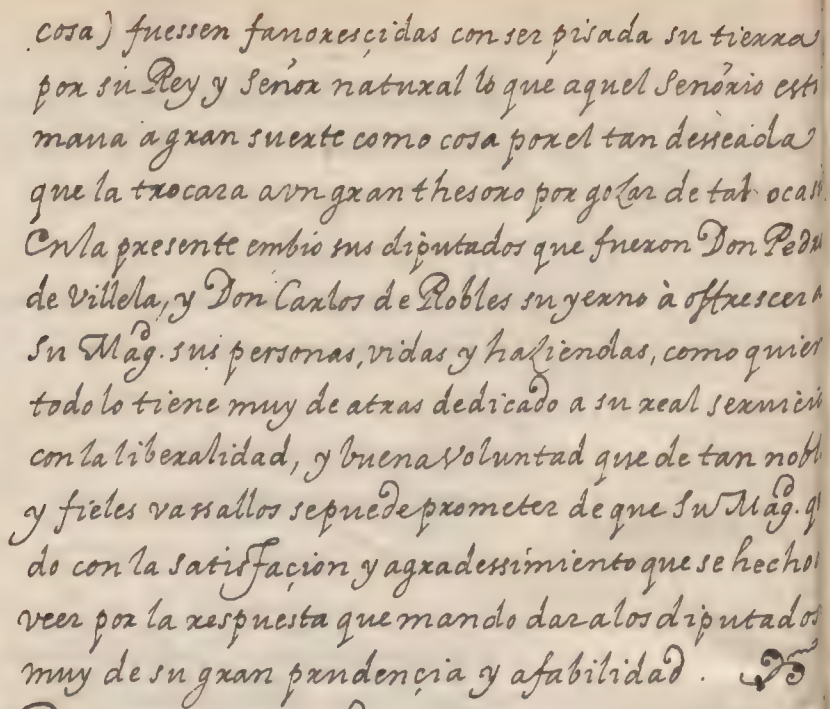 cosa) fuessen fauoresçidas con ser pisada su tierra
por su Rey y Señor natural lo que aquel Señorio esti
maua a gran suerte como cosa por el tan desseada
que la trocara a vn gran thesoro por gozar de tal ocasi
En la presente embio sus diputados que fueron Don Pedr
de Villela, y Don Carlos de Robles su yerno à offrescer a
Su Magd. sus personas, vidas y haziendas, como quier
todo lo tiene muy de atras dedicado a su real seruicio
con la liberalidad, y buena voluntad que de tan nobl
y fieles vassallos se puede prometer de que Su Magd. q
do con la satisfaçion y agradessimiento que se hecho
veer por la respuesta que mando dar a los diputados
muy de su gran prudençia y afabilidad.